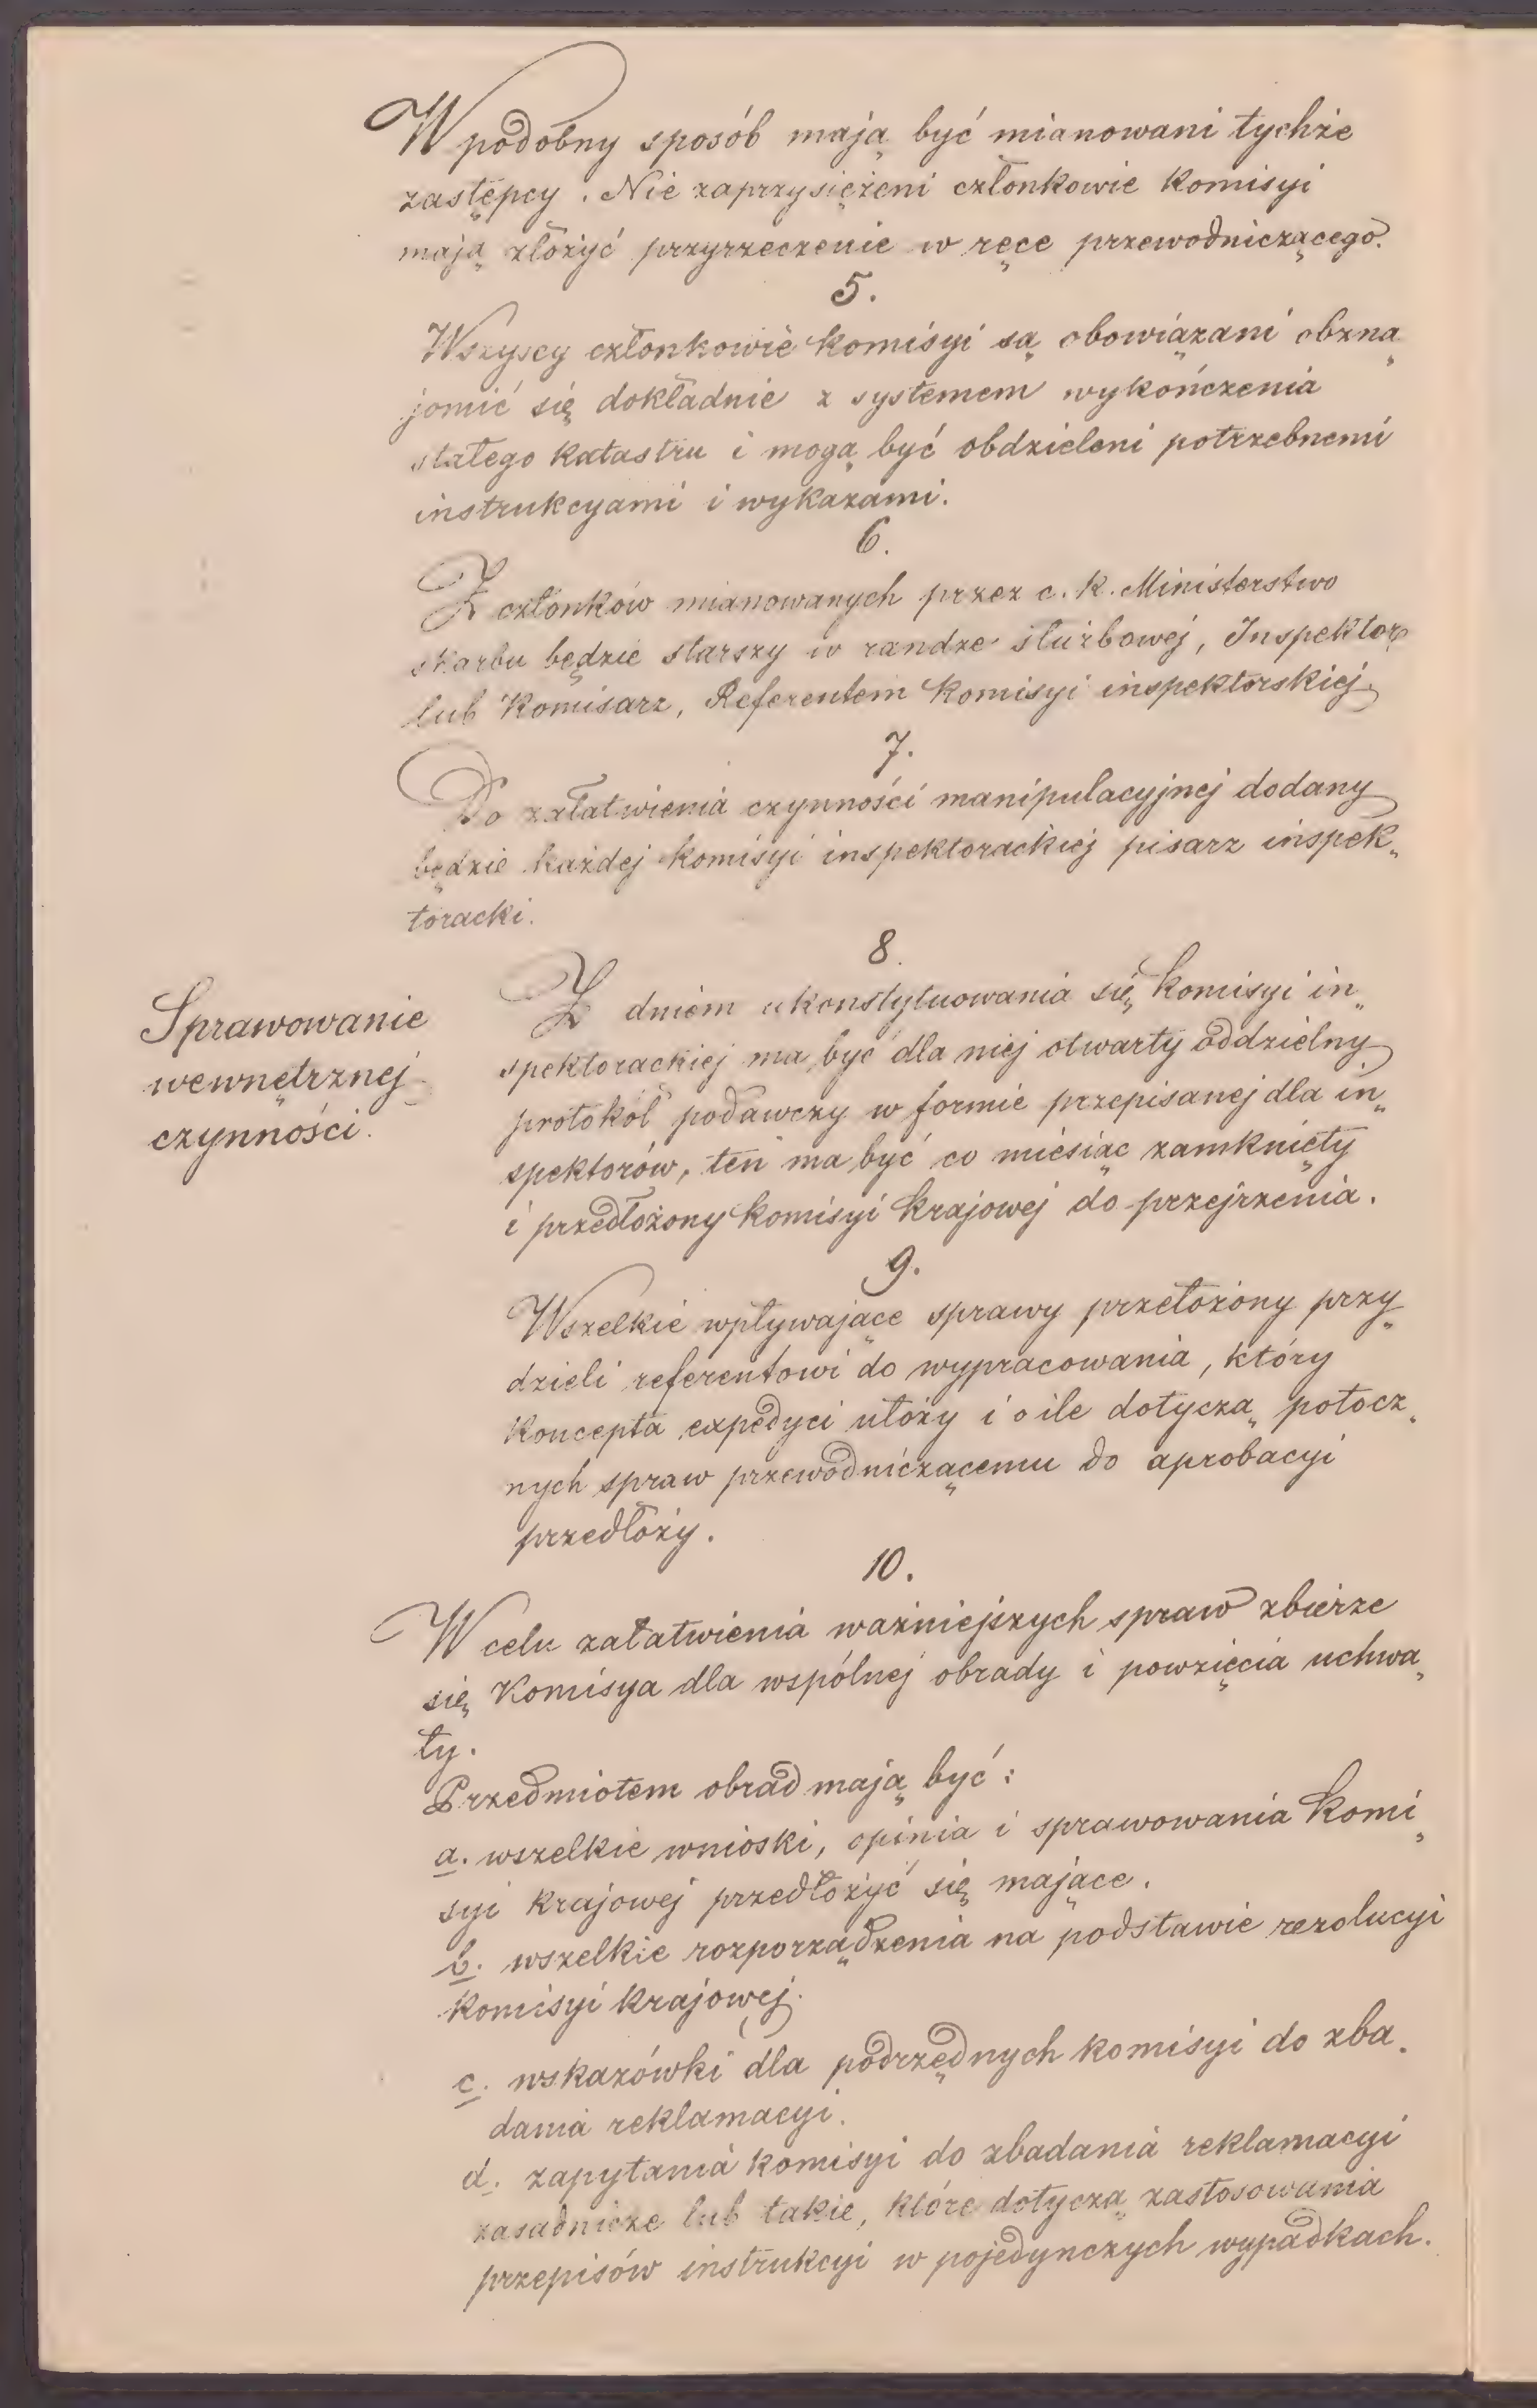 W podobny sposób mają być mianowani tychże
zastępcy. Nie zaprzysiężeni członkowie Komisyi
mają złożyć przyrzeczenie w ręce przewodniczącego.
5.
Wszyscy członkowie Komisyi są obowiązani obzna„
jomić się dokładnie z systemem wykończenia
stałego katastru i mogą być obdzieleni potrzebnemi
instrukcyami i wykazami.
6.
Z członków mianowanych przez c. k. Ministerstwo
skarbu będzie starszy w randze służbowej, Inspektor
lub Komisarz, Referentem Komisyi inspektorskiej
7.
Do załatwienia czynności manipulacyjnej dodany
będzie każdej Komisyi inspektorackiej pisarz inspek„
toracki.
Sprawowanie
wewnętrznej
czynności.
8.
Z dniem ukonstytuowania się Komisyi in„
spektorackiej ma być dla niej otwarty oddzielny
protokół podawczy w formie przepisanej dla in„
spektorów, ten ma być co miesiąc zamknięty
i przedłożony Komisyi Krajowej do przejrzenia.
9.
Wszelkie wpływające sprawy przełożony przy„
dzieli referentowi do wypracowania, który
Koncepta expedyci ułoży i o ile dotyczą potocz„
nych spraw przewodniczącemu do aprobacyi
przedłoży.
10.
W celu załatwienia ważniejszych spraw zbierze
się Komisya dla wspólnej obrady i powzięcia uchwa„
ły.
Przedmiotem obrad mają być:
a. wszelkie wnioski, opinia i sprawowania Komi„
syi Krajowej przedłożyć się mające.
b. wszelkie rozporządzenia na podstawie rezolucyi
Komisyi krajowej.
c. wskazówki dla podrzędnych komisyi do zba„
dania reklamacyi.
d. zapytania komisyi do zbadania reklamacyi
zasadnicze lub takie, które dotyczą zastosowania
przepisów instrukcyi w pojedynczych wypadkach.